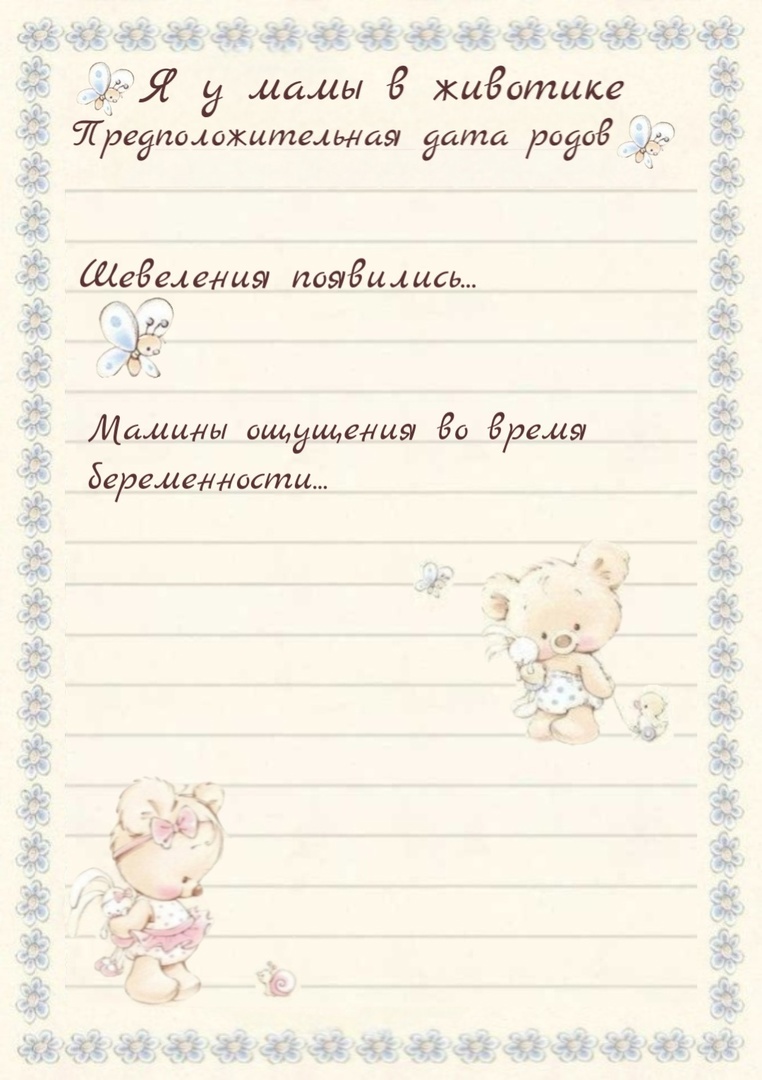 Я у мамы в животике
Предположительная дата родов
Шевеления появились...
Мамины ощущения во время
беременности...